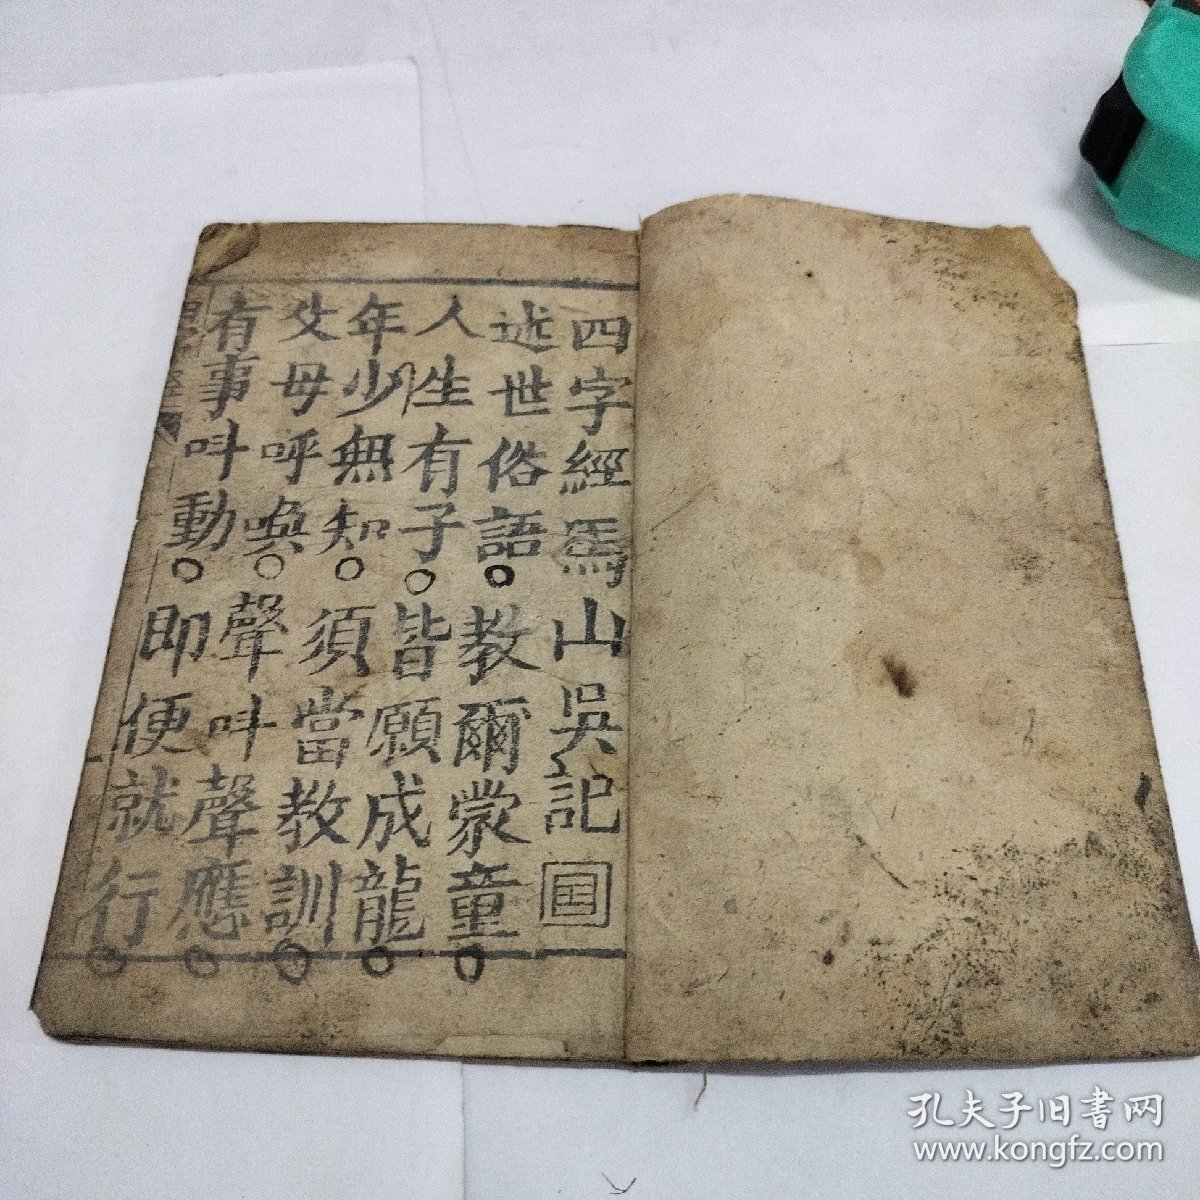 四字經馬山吳記
述世俗語○教爾蒙童○
人生有子○皆願成龍○
年少無知○須當教訓○
父母呼喚○聲叫聲應○
有事叫動○即便就行○
孔夫子旧書网
www.kongfz.com